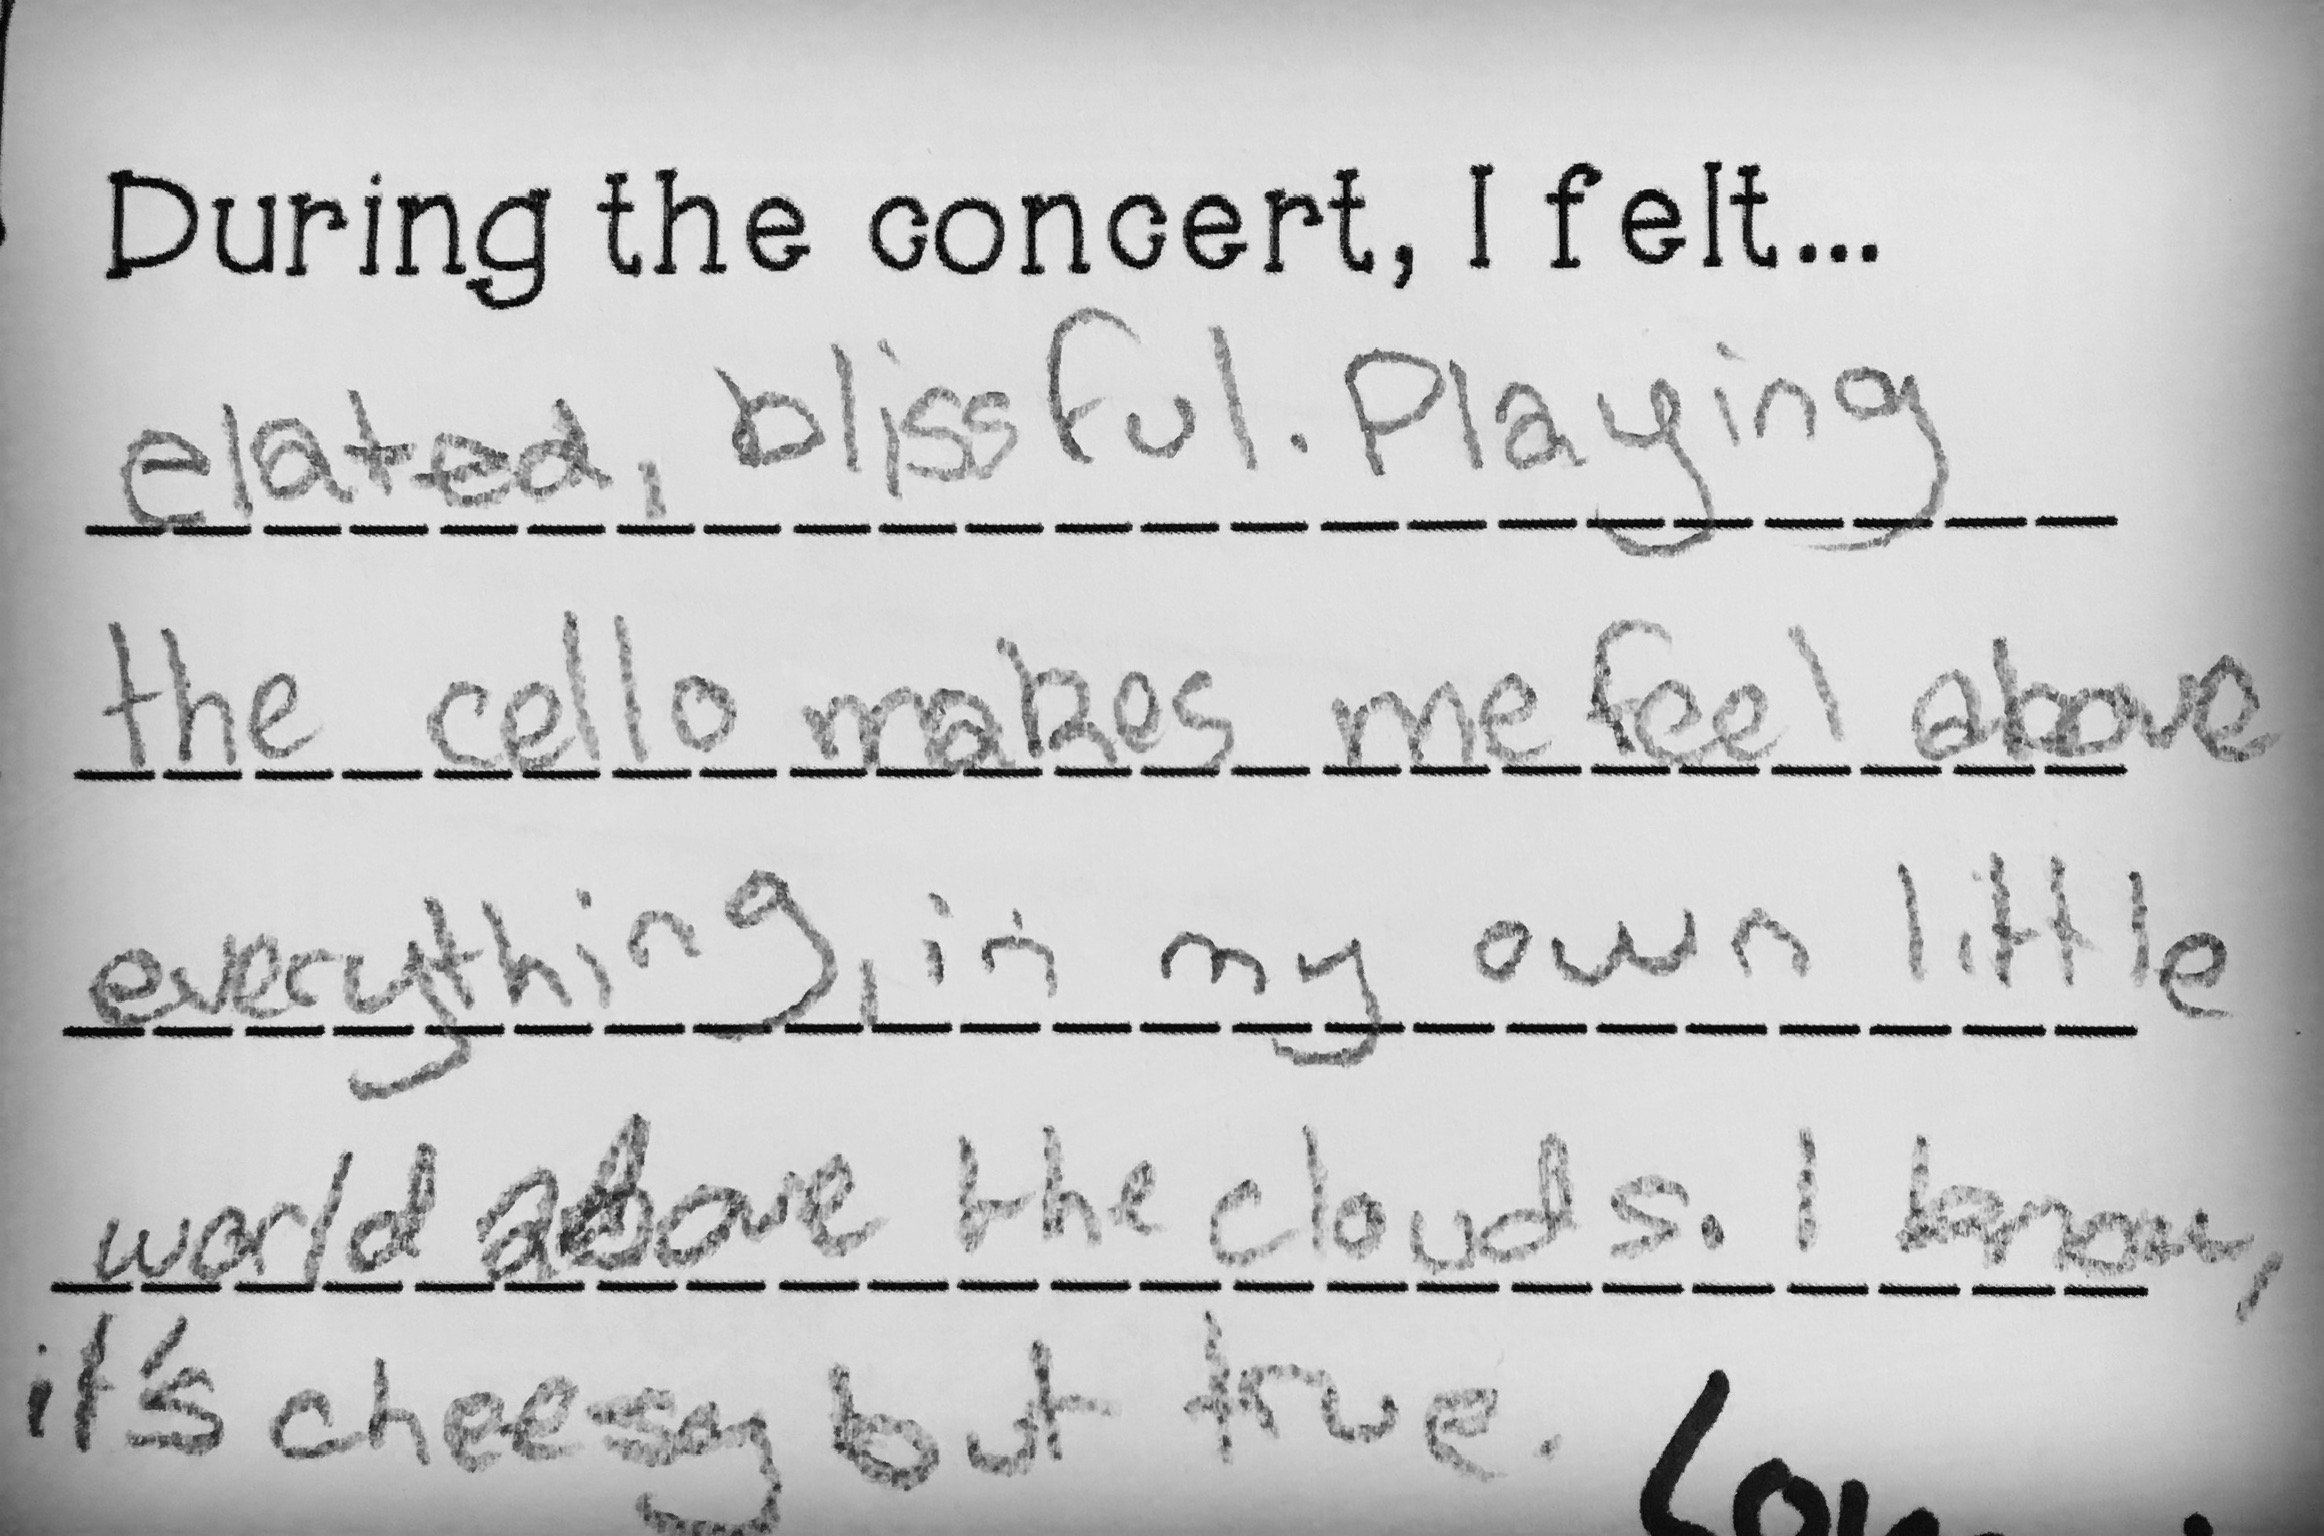 During the concert, I felt...
elated, blissful. Playing
the cello makes me feel above
everything, in my own little
world above the clouds. I know,
it's cheesy but true.